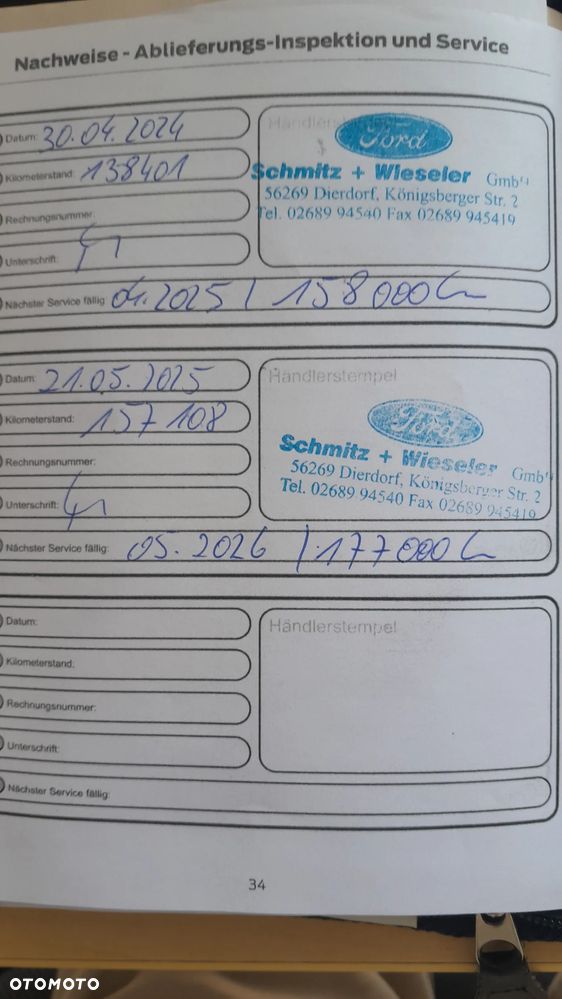 Nachweise - Ablieferungs-Inspektion und Service
Datum: 30.04.2024
Kilometerstand: 138401
Rechnungsnummer:
Unterschrift:
Nächster Service fällig: 04.2025 / 158000
Händlerstempel
Ford
Schmitz + Wieseler GmbH
56269 Dierdorf, Königsberger Str. 2
Tel. 02689 94540 Fax 02689 945419
Datum: 21.05.2025
Kilometerstand: 157108
Rechnungsnummer:
Unterschrift:
Nächster Service fällig: 05.2026 / 177000
Händlerstempel
Ford
Schmitz + Wieseler GmbH
56269 Dierdorf, Königsberger Str. 2
Tel. 02689 94540 Fax 02689 945419
Datum:
Kilometerstand:
Rechnungsnummer:
Unterschrift:
Nächster Service fällig:
Händlerstempel
34
OTOMOTO